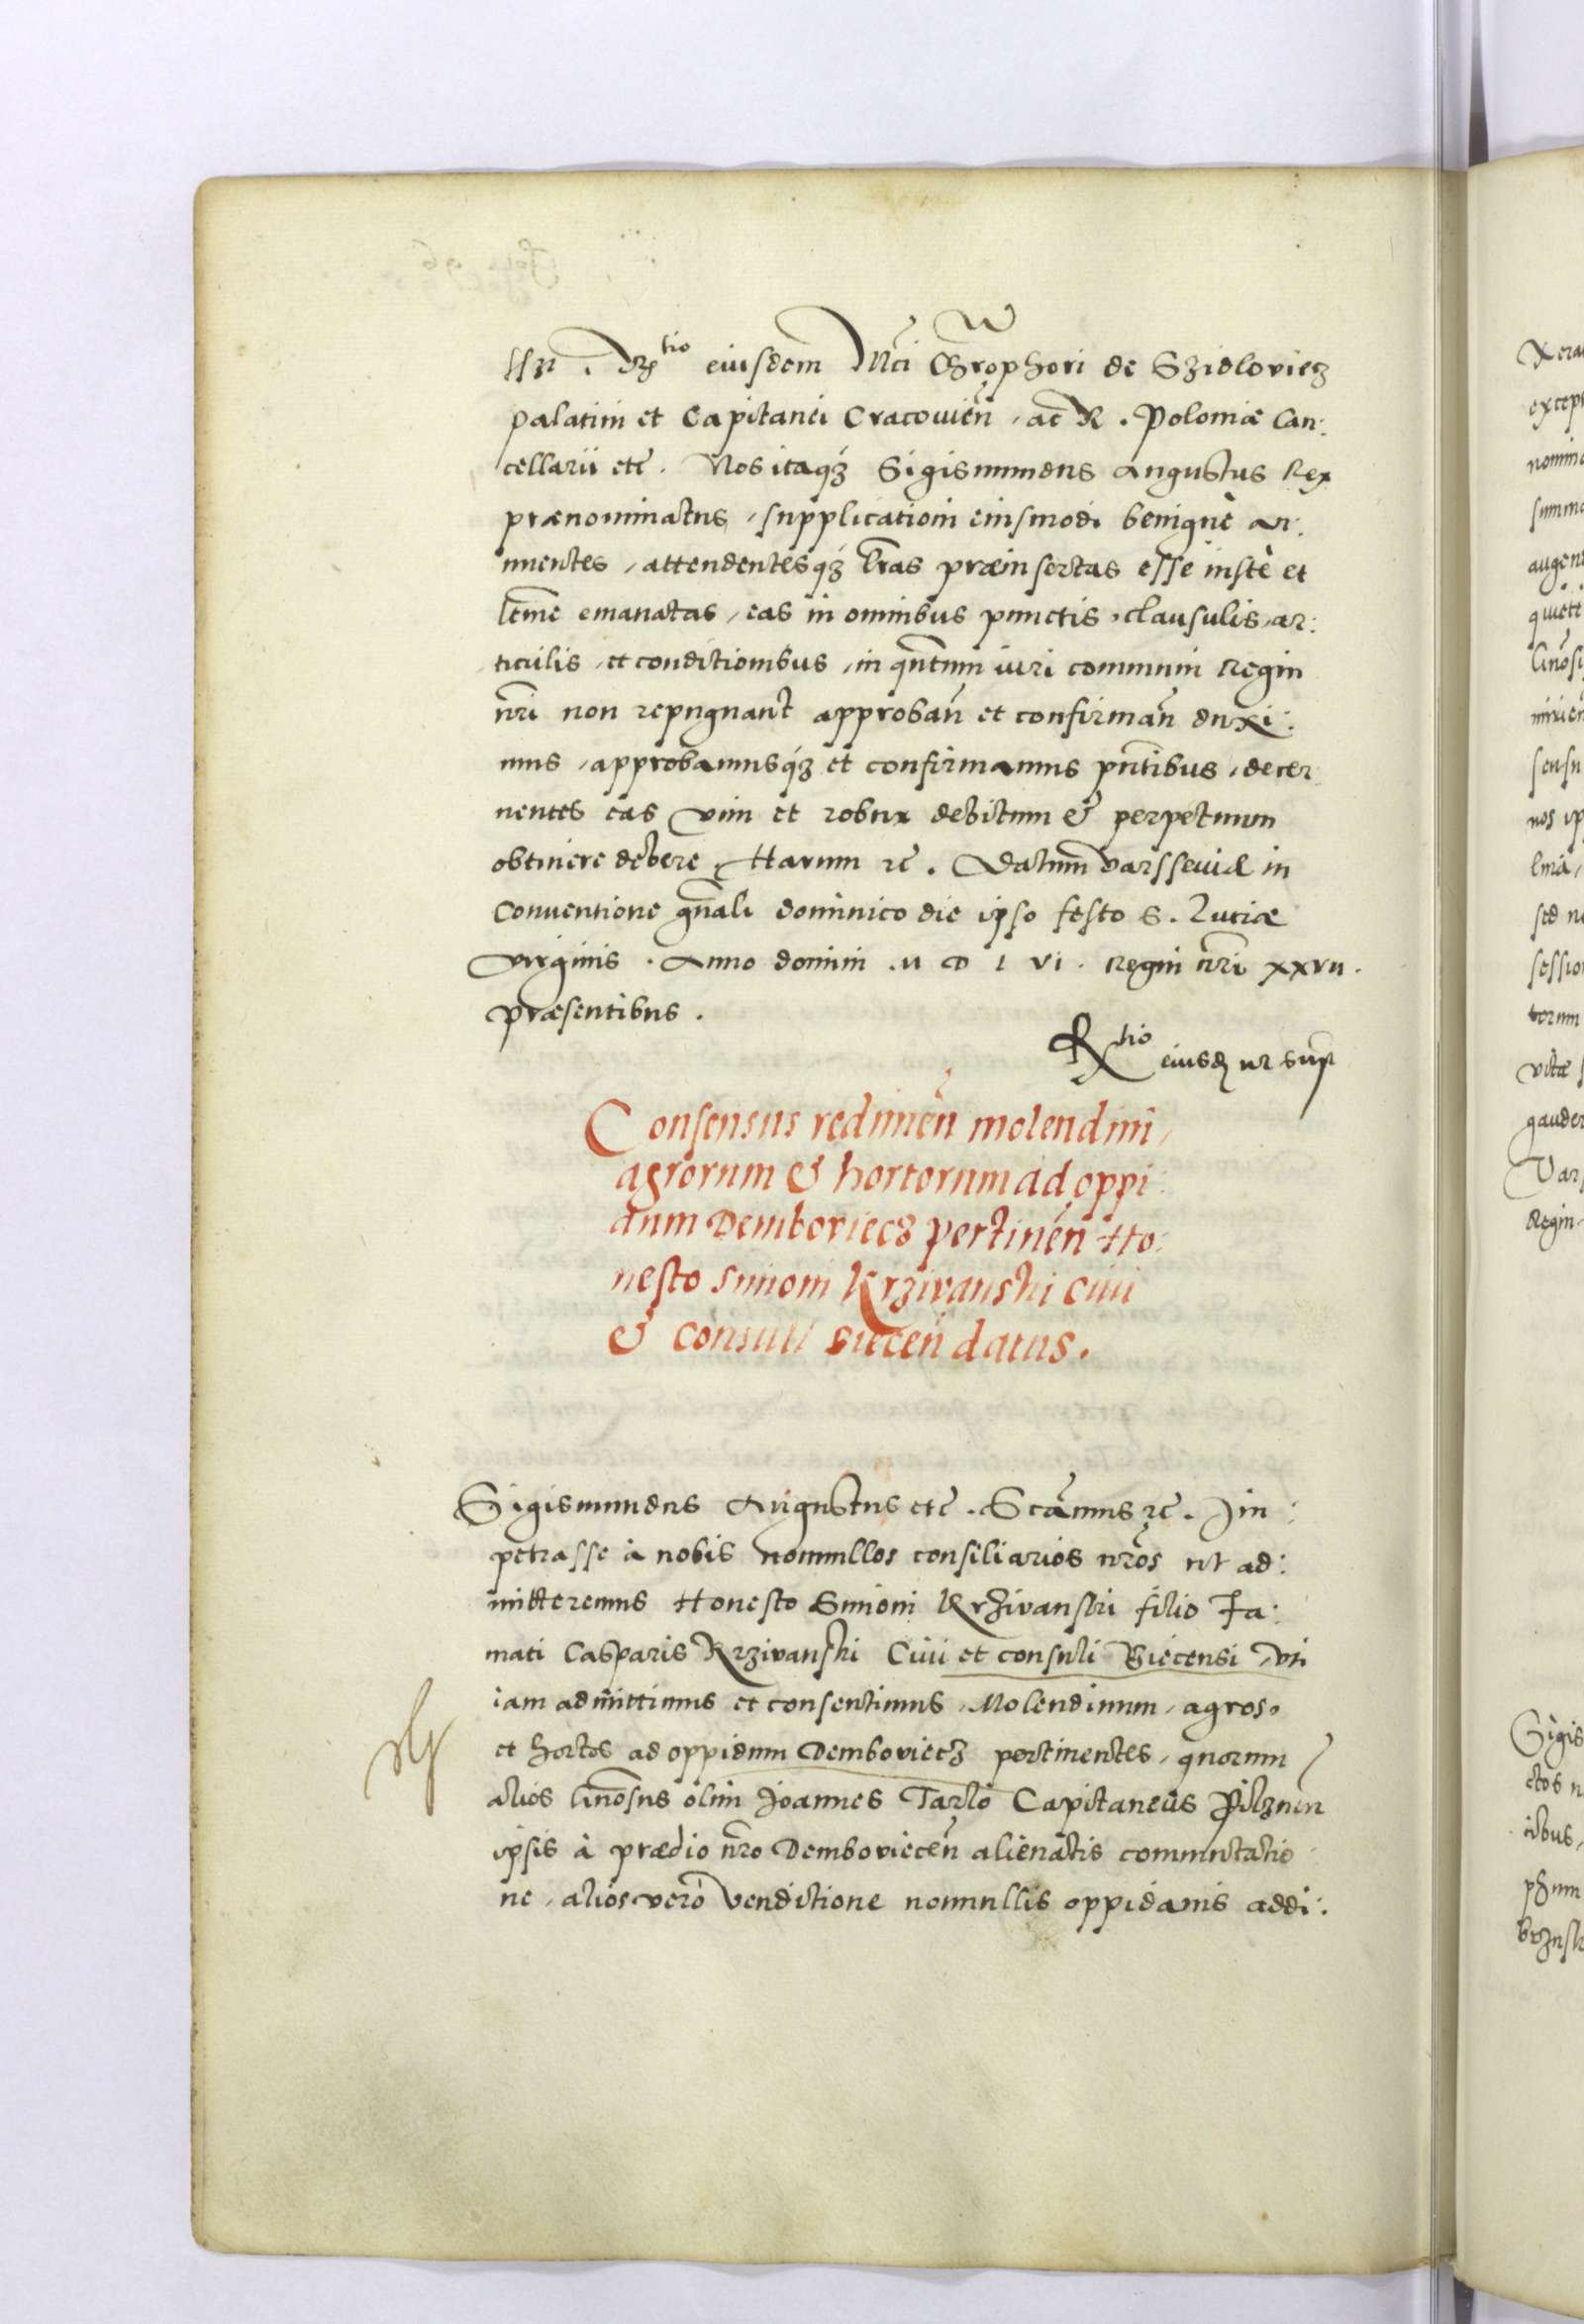 sszt. Rtio eiusdem Mci Chrophori de Szidloviecz
Palatini et Capitanei Cracovien, ac R. Poloniæ Can:
cellarii etc. Nos itaq3 Sigismundus Augustus Rex
prænominatus, supplicationi eiusmodi benignè an:
nuentes, attendentesq3 lras præinsertas esse iustè et
ltme emanatas, eas in omnibus punctis, clausulis, ar:
ticulis, et conditionibus, in quntum iuri communi Regni
nri non repugnant approban et confirman duxi:
mus, approbamusq3 et confirmamus pntibus, decer
nentes eas vim et robur debitum & perpetuum
obtinere debere, Harum rc. Datum Varsseviæ in
Conventione gnali dominico die ipso festo S. Luciæ
Virginis. Anno domini. M D L VI. Regni nri xxvii.
præsentibus.
Rtio eiusd ut supr
Consensus redimen molendini,
agrorum & hortorum ad oppi:
dum Demboviecz pertinen Ho:
nesto Simoni Krzivanski Civi
& Consuli Biecen datus.
Sigismundus Augustus etc. Scamus rc. Im:
petrasse à nobis nonnullos consiliarios nros ut ad:
mitteremus Honesto Simoni Krzivanski filio Fa:
mati Casparis Krzivanski Civi et consuli Biecensi, uti
iam admittimus et consentimus, Molendinum, agros,
et hortos ad oppidum Demboviecz pertinentes, quorum
alios Gnosus olim Joannes Tarlo Capitaneus Pilznen
ipsis à prædio nro Demboviecen alienatis commutatio
ne, alios verò venditione nonnullis oppidanis addi: